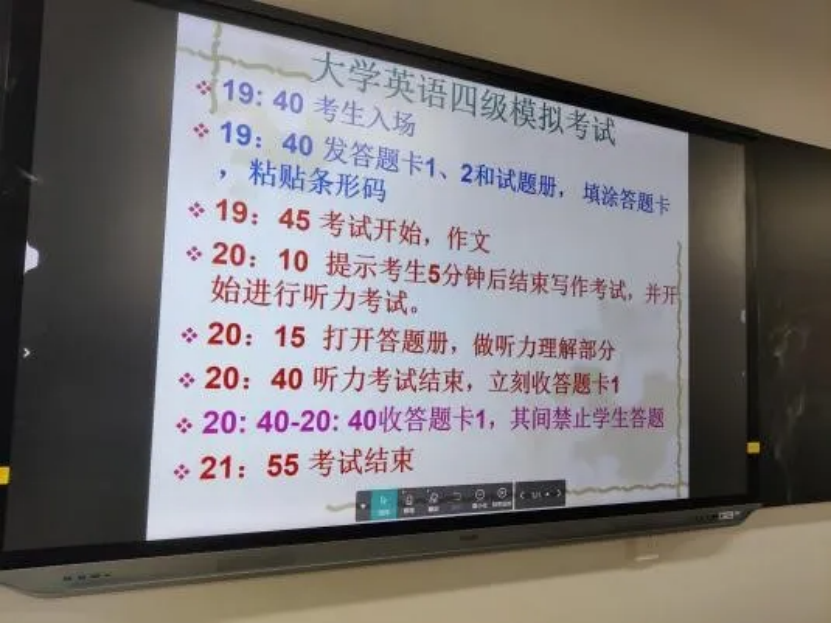 大学英语四级模拟考试
19: 40 考生入场
19: 40 发答题卡1、2和试题册, 填涂答题卡
, 粘贴条形码
19: 45 考试开始, 作文
20: 10 提示考生5分钟后结束写作考试, 并开
始进行听力考试。
20: 15 打开答题册, 做听力理解部分
20: 40 听力考试结束, 立刻收答题卡1
20: 40-20: 40收答题卡1, 其间禁止学生答题
21: 55 考试结束
1/1